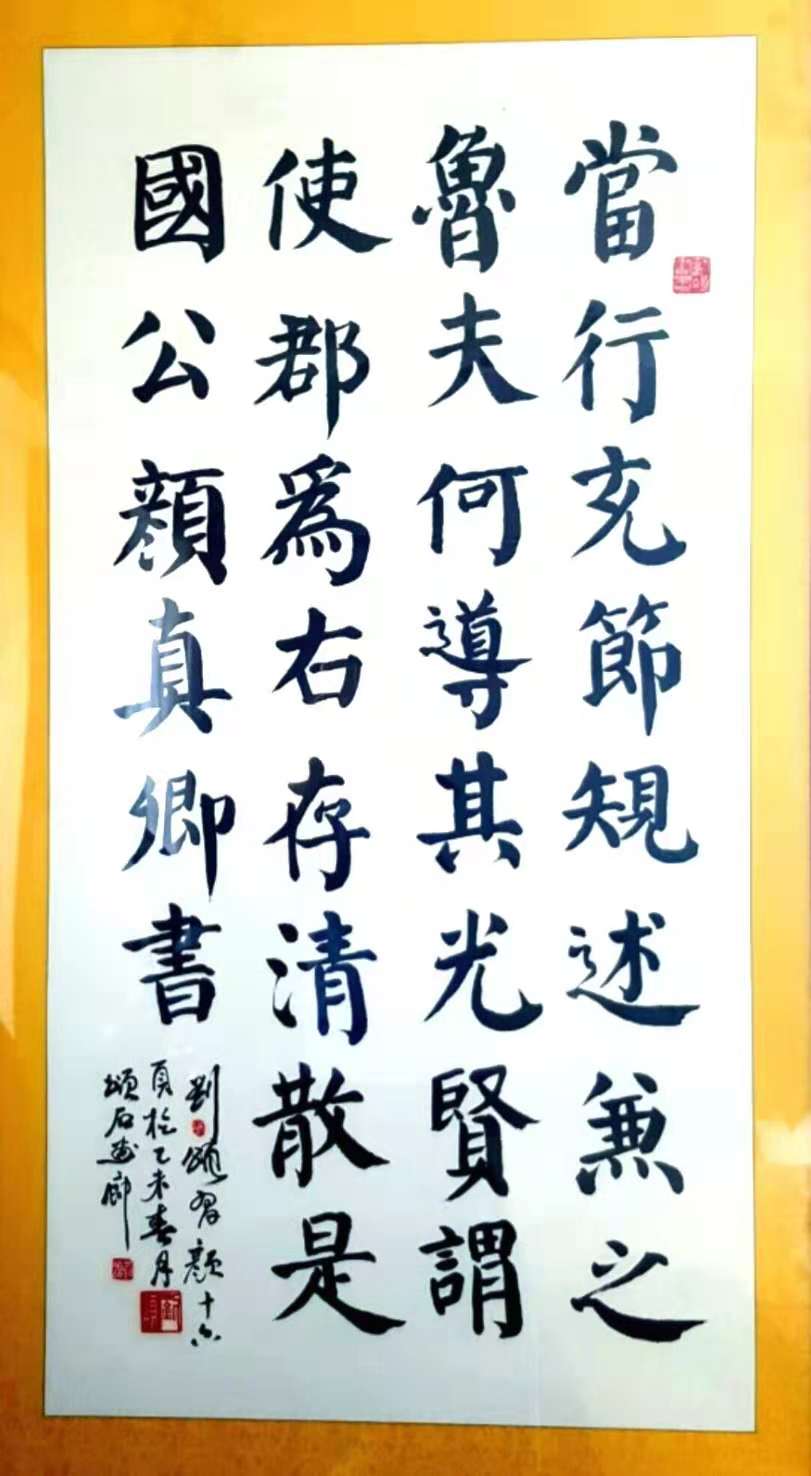 當行充節規述兼之
魯夫何導其光賢謂
使郡為右存清散是
國公顏真卿書
劉頌習顏十六
頁於乙未春月
頌石画廊